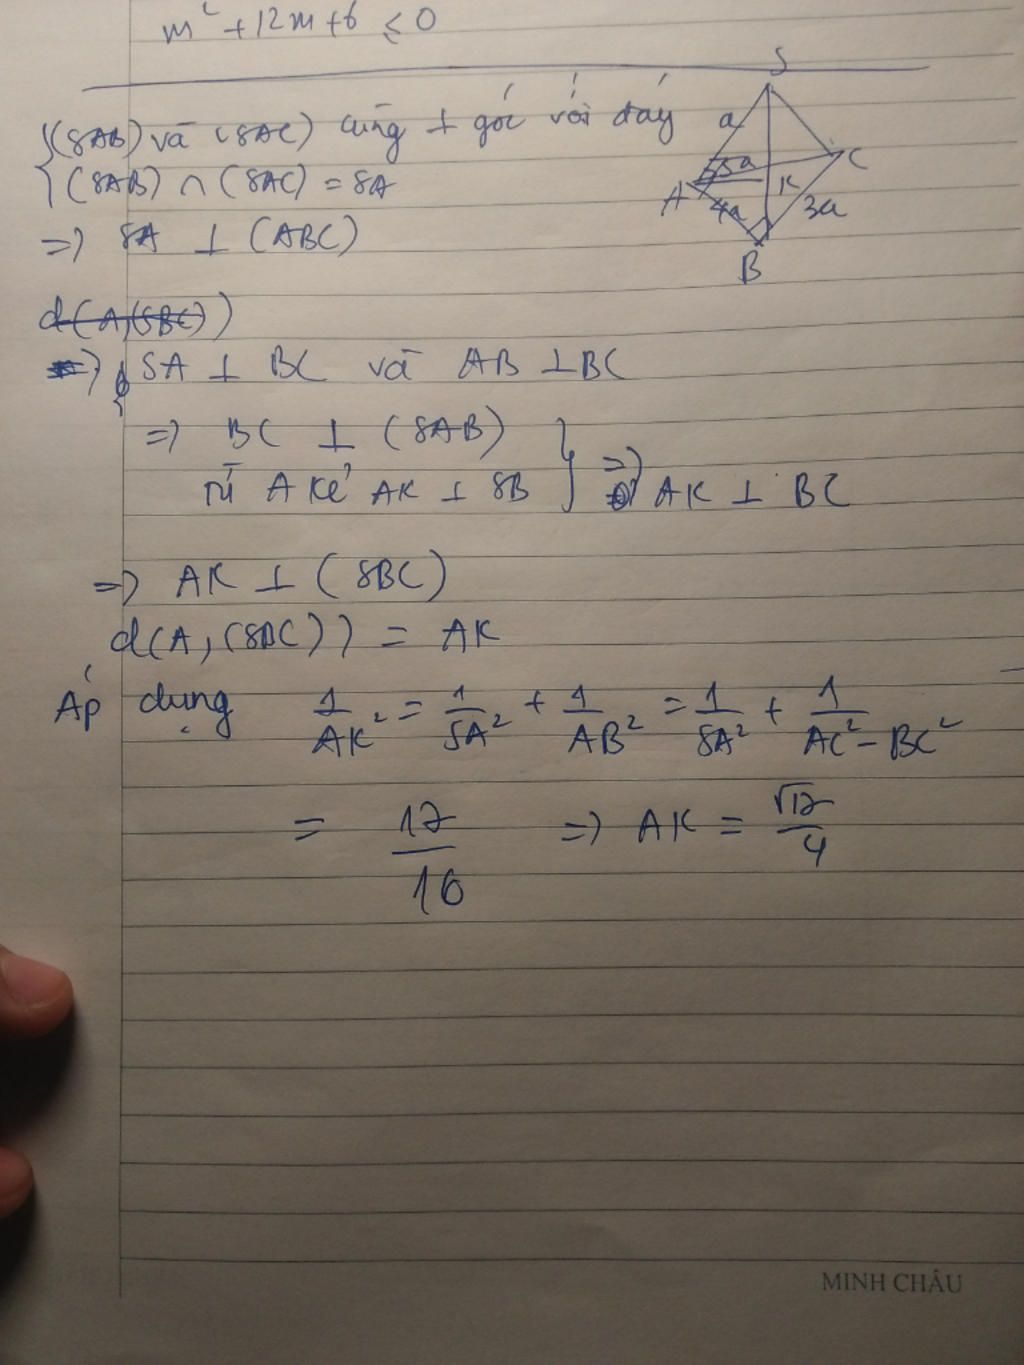 m² + 12m + 6 ≤ 0
S
{(SAB) và (SAC) cùng ⊥ góc với đáy
a
C
(SAB) ∩ (SAC) = SA
5a
K
A
4a
3a
=> SA ⊥ (ABC)
B
d(A,(SBC))
=> { SA ⊥ BC và AB ⊥ BC
=> BC ⊥ (SAB)
từ A kẻ AK ⊥ SB } => AK ⊥ BC
=> AK ⊥ (SBC)
d(A,(SBC)) = AK
Áp dụng 1/AK² = 1/SA² + 1/AB² = 1/SA² + 1/AC² - BC²
= 17/16 => AK = √17/4
MINH CHÂU